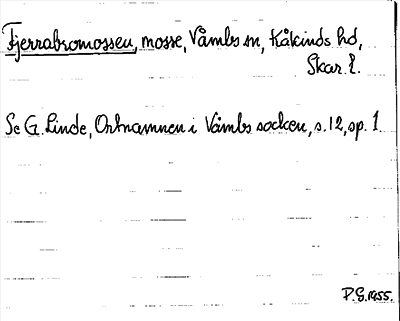 Fjerrabromossen, mosse, Våmbs sn, Kåkinds hd,
Skar. l.
Se G. Linde, Ortnamnen i Våmbs socken, s. 12, sp. 1
P.G. 1955.